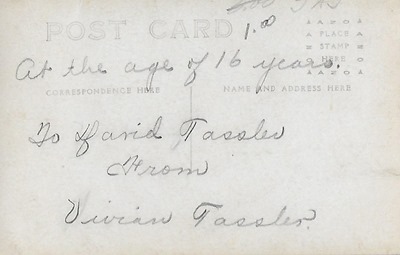 POST CARD
1.00
AZOA
PLACE
STAMP
HERE
AZOA
At the age of 16 years.
CORRESPONDENCE HERE
NAME AND ADDRESS HERE
To David Tassler
From
Vivian Tassler.